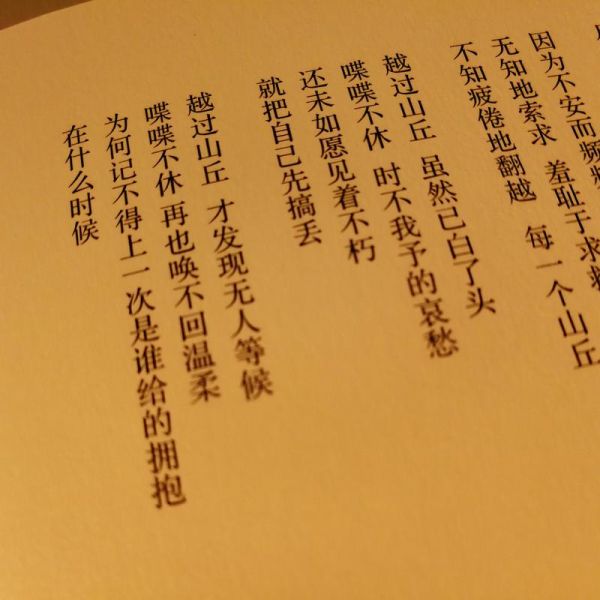 因为不安而频频
无知地索求 羞耻于求救
不知疲倦地翻越 每一个山丘
越过山丘 虽然已白了头
喋喋不休 时不我予的哀愁
还未如愿见着不朽
就把自己先搞丢
越过山丘 才发现无人等候
喋喋不休 再也唤不回温柔
为何记不得上一次是谁给的拥抱
在什么时候